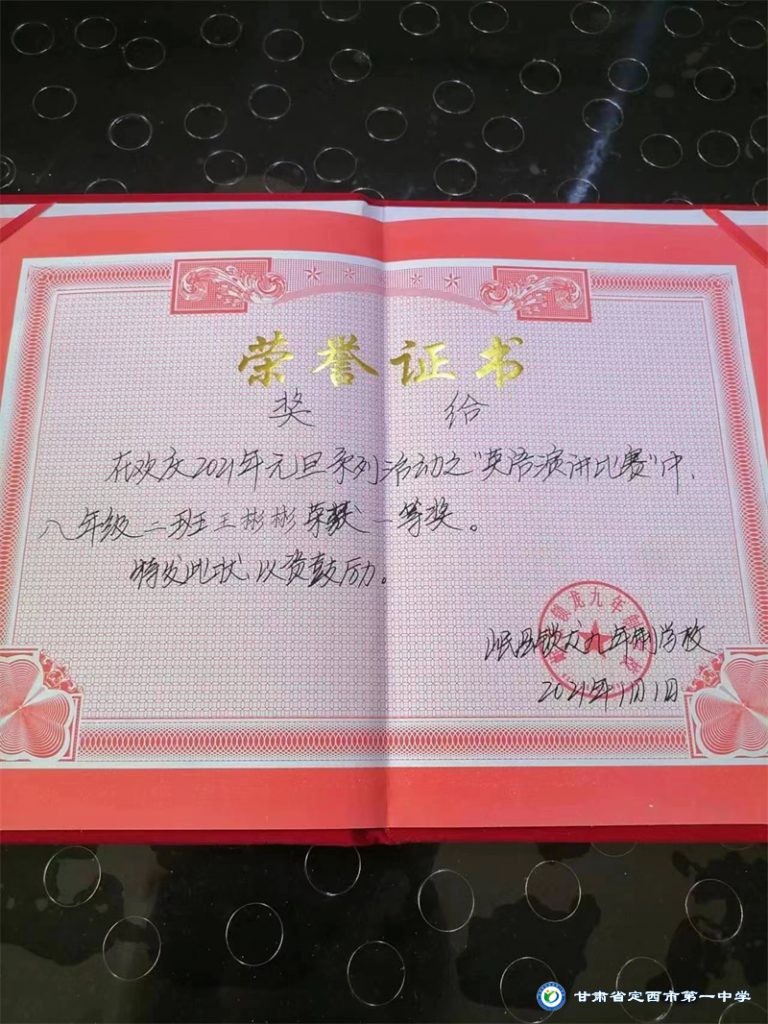 荣誉证书
奖 给
在欢庆2021年元旦系列活动之"英语演讲比赛"中,
八年级二班王彬彬荣获一等奖。
特发此状,以资鼓励。
锁龙九年制学校
岷县锁龙九年制学校
2021年1月1日
甘肃省定西市第一中学